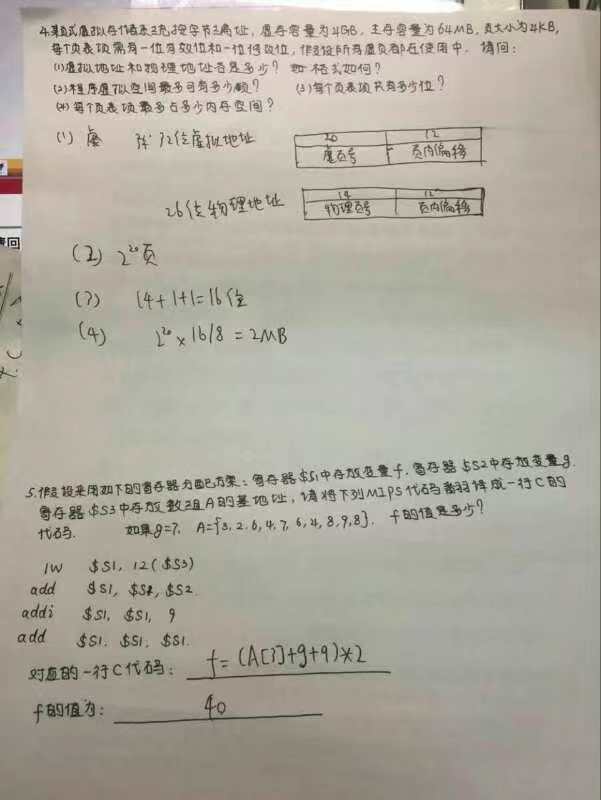 4.某页式虚拟存储系统按字节编址，虚存容量为4GB，主存容量为64MB，页大小为4KB，
每个页表项需有一位有效位和一位修改位，假设所有虚页都在使用中．请问：
(1)虚拟地址和物理地址各是多少？ 如格式如何？
(2)程序虚拟空间最多可有多少页？ (3)每个页表项共有多少位？
(4)每个页表项最多占多少内存空间？
(1) 虚 32位虚拟地址
20 12
虚页号 页内偏移
26位物理地址
14 12
物理页号 页内偏移
(2) 2²⁰页
(3) 14+1+1=16位
(4) 2²⁰×16/8=2MB
5.假设采用如下的寄存器分配方案：寄存器$S1中存放变量f，寄存器$S2中存放变量g．
寄存器$S3中存放数组A的基地址，请将下列MIPS代码翻译成一行C的
代码． 如果g=7，A={3,2,6,4,7,6,4,8,9,8}， f的值是多少？
lw $S1, 12($S3)
add $S1, $S1, $S2
addi $S1, $S1, 9
add $S1, $S1, $S1
对应的一行C代码： f=(A[3]+g+9)*2
f的值为： 40